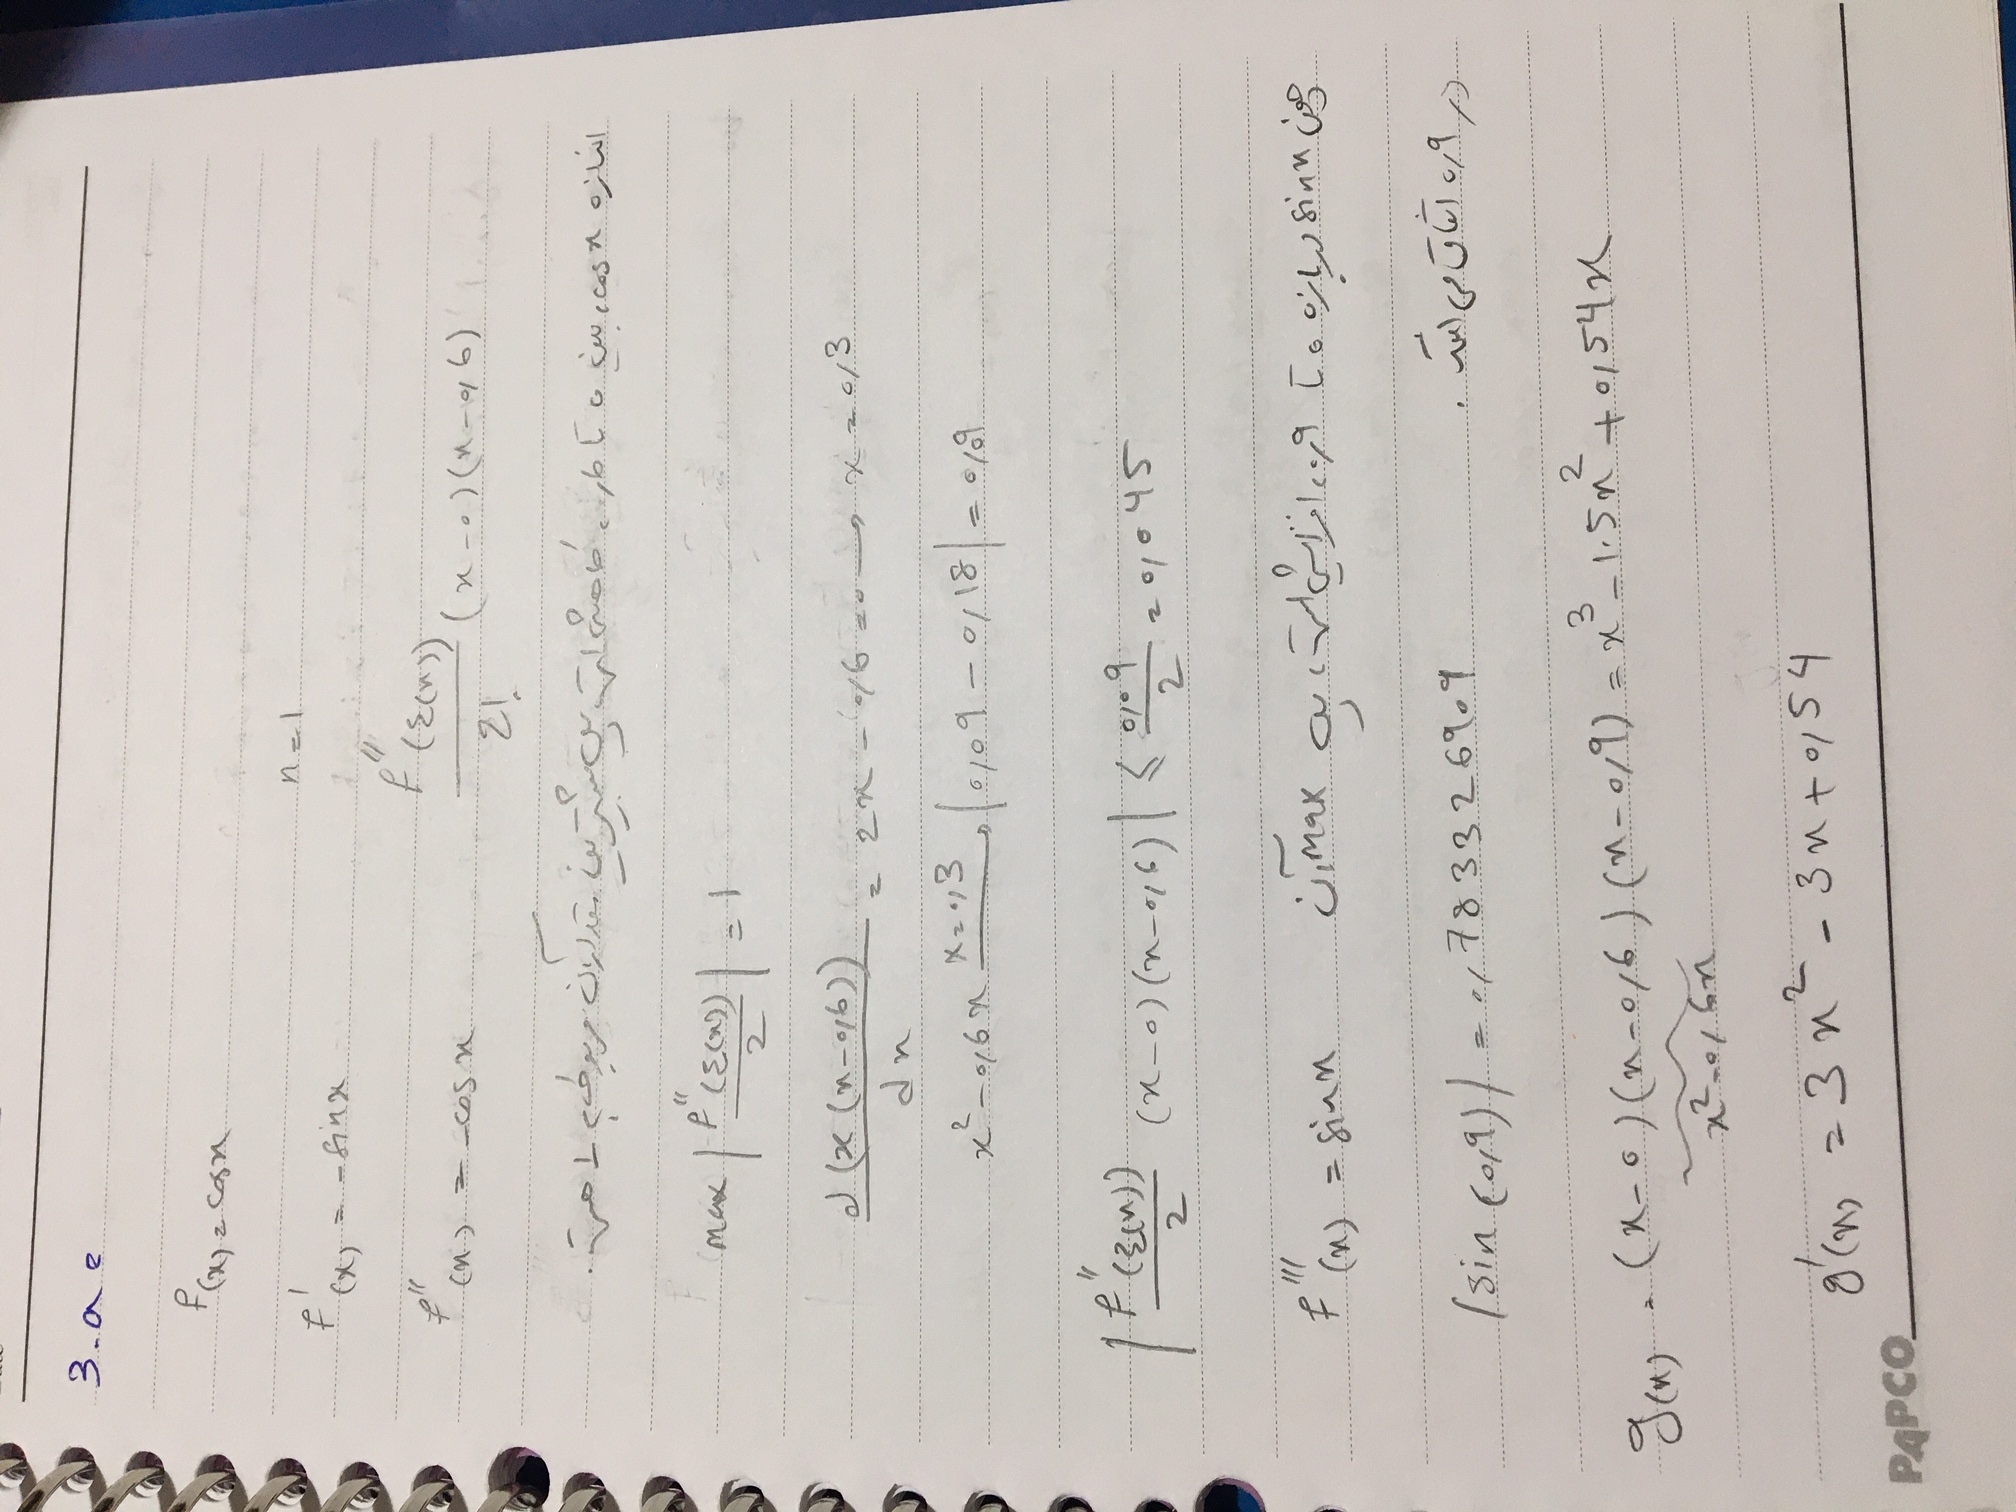 3-a:
f(x) = cosx
n=1
f'(x) = -sinx
f''(x) = -cosx
f''(ξ(x))/2! (x-0)(x-0,6)
اندازه cosx، بین ۰ تا ۰،۶ کاهشی است پس بیشترین مقدار آن مربوط به 1 است.
max |f''(ξ(x))/2| = 1
d(x(x-0,6))/dx = 2x - 0,6 = 0 → x = 0,3
x² - 0,6x x=0,3 → |0,09 - 0,18| = 0,09
|f''(ξ(x))/2 (x-0)(x-0,6)| ≤ 0,09/2 = 0,045
f'''(x) = sinx چون sinx در بازه ۰ تا ۰،۹ افزایشی است، پس max آن
در ۰،۹ اتفاق می افتد.
|sin(0,9)| = 0,783326909
g(x) = (x-0)(x-0,6)(x-0,9) = x³ - 1.5x² + 0,54x
x² - 0,6x
g'(x) = 3x² - 3x + 0,54
PAPCO